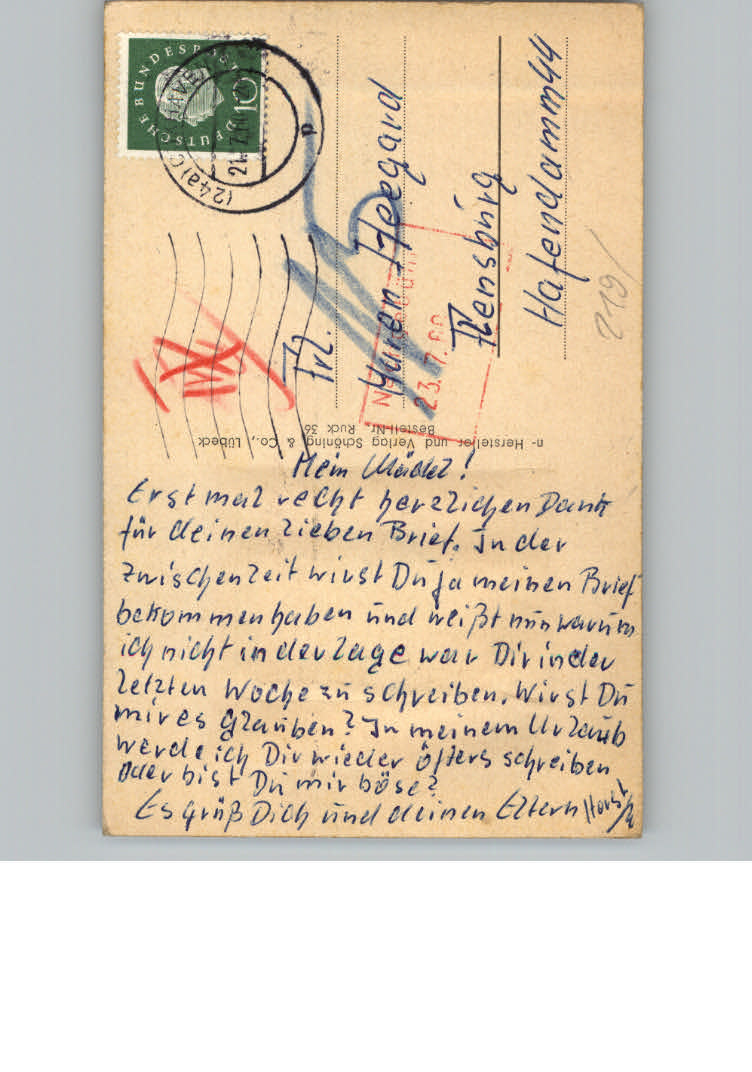 DEUTSCHE BUNDESPOST
10
(24a) C
21.7.60
p
Frl.
Maren Heegard
Flensburg
Hafendamm 44
219/
23.7.60
n- Hersteller und Verlag Schöning & Co., Lübeck
Bestell-Nr. Ruck 36
Mein Mädel!
Erst mal recht herzlichen Dank
für deinen lieben Brief. In der
zwischenzeit wirst Du ja meinen Brief
bekommen haben und weißt nun warum
ich nicht in der Lage war Dir in der
letzten Woche zu schreiben. Wirst Du
mir es glauben? In meinem Urlaub
werde ich Dir wieder öfters schreiben
oder bist Du mir böse?
Es grüß Dich und deinen Eltern Horst